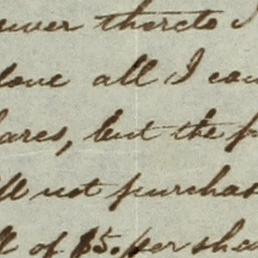 swer thereto I
done all I can
ares, but the p
ll not purchas
ll of $5. per sha